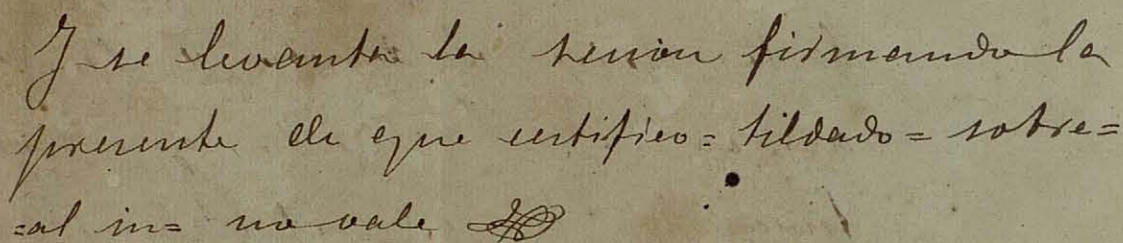 Y se levanta la sesion firmando la
presente de que certifico = tildado = sobre=
=al in= no vale